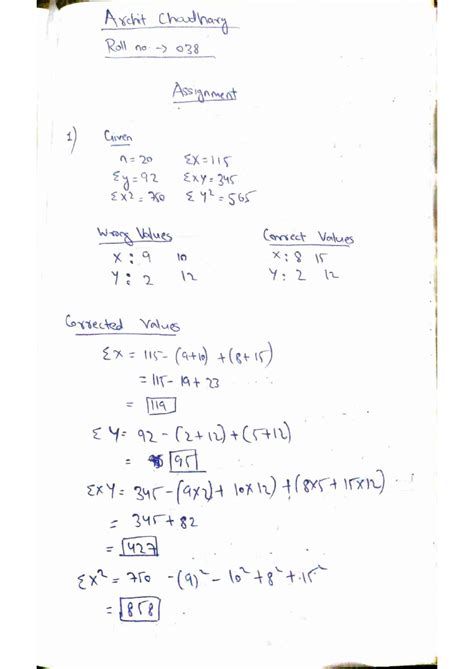 Archit Chaudhary
Roll no. → 038
Assignment
1) Given
n=20 ΣX=115
Σy=92 ΣXY=345
ΣX²=750 ΣY²=565
Wrong Values Correct Values
X: 9 10 X: 8 15
Y: 2 12 Y: 2 12
Corrected Values
ΣX = 115-(9+10) +(8+15)
= 115-19+23
= 119
ΣY= 92 -(2+12)+(5+12)
= 95
ΣXY= 345-(9X2)+ 10X12) +(8X5 +15X12)
= 345+82
= 427
ΣX² = 750 -(9)² - 10² + 8² + 15²
= 858